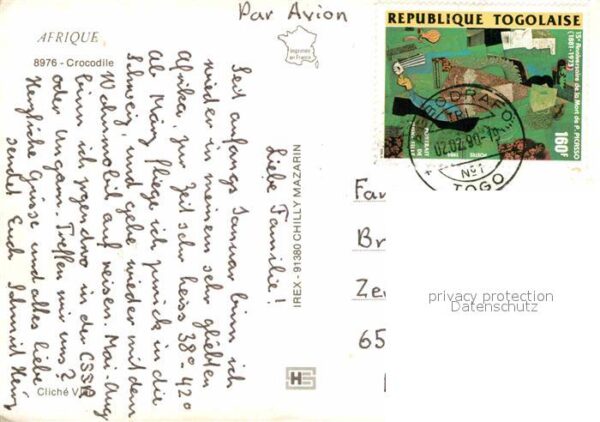 Par Avion
AFRIQUE
8976 - Crocodile
imprimée
en France
REPUBLIQUE TOGOLAISE
15e Anniversaire de la Mort de P. PICASSO
(1881-1973)
160F
POSTES 1984
PORTRAIT DE
JEUNE FILLE
02.02.90
Nº1
TOGO
Liebe Familie!
Seit anfangs Januar binn ich
wieder in meinem sehr glübten
Afrika. Zur Zeit sehr heiss 38°-42°
Ab Mai fliege ich zurück in die
Schweiz, und gehe wieder mit dem
Wohnmobil auf reisen. Mai-Aug
binn ich irgendwo in der CSSR
oder Ungarn. Treffen wir uns?
Herzliche Grüsse und alles liebe
sendet Euch Schmid Heinz
IREX - 91380 CHILLY MAZARIN
Fam
Br
Ze
65
privacy protection
Datenschutz
Cliché V